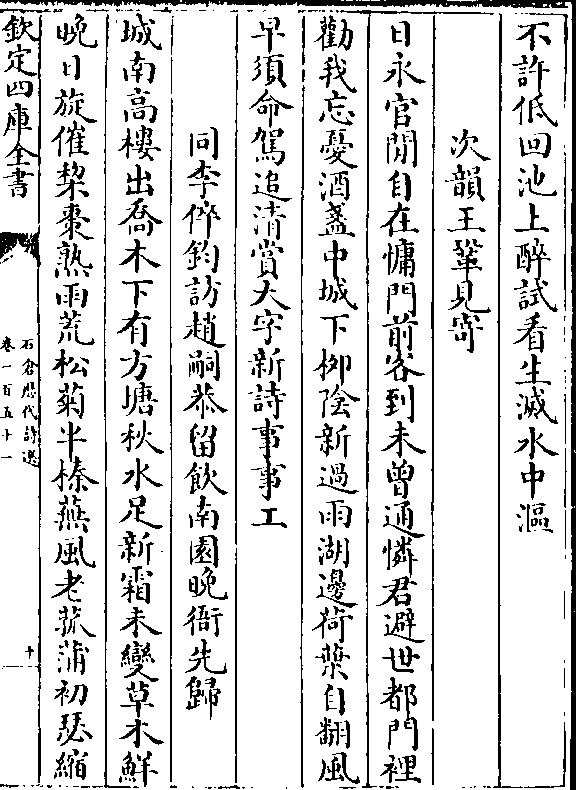 不許低回池上醉試看生滅水中漚
次韻王鞏見寄
日永官閒自在慵門前客到未曾通憐君避世都門裡
勸我忘憂酒盞中城下柳陰新過雨湖邊荷葉自翻風
早須命駕追清賞大字新詩事事工
同李倅鈞訪趙嗣恭留飲南園晩衙先歸
城南高樓出喬木下有方塘秋水足新霜未變草木鮮
晚日旋催棃棗熟雨荒松菊半榛蕪風老菰蒲初瑟縮
欽定四庫全書
石倉歷代詩選
卷一百五十一
十